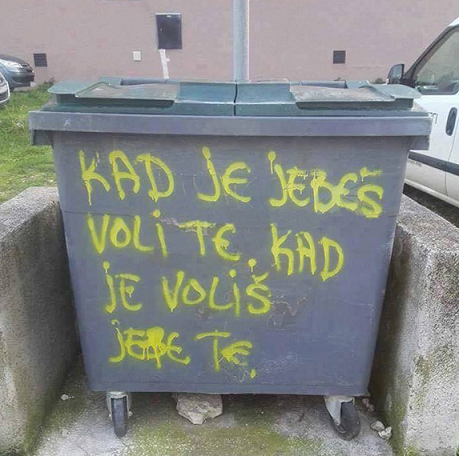 KAD JE JEBEŠ
VOLI TE. KAD
JE VOLIŠ
JEBE TE.